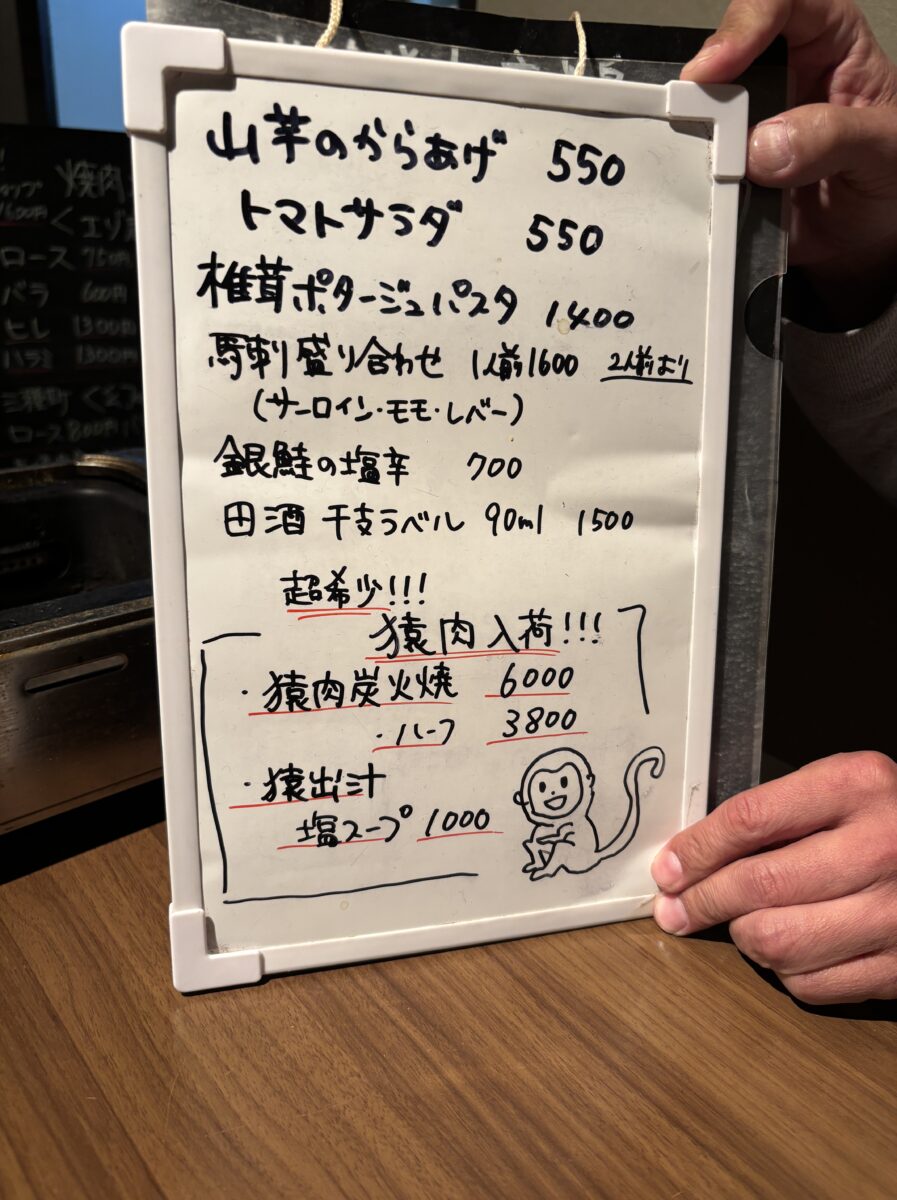 山芋のからあげ 550
トマトサラダ 550
椎茸ポタージュパスタ 1400
馬刺し盛り合わせ 1人前1600 2人前より
(サーロイン・モモ・レバー)
銀鮭の塩辛 700
田酒 干支ラベル 90ml 1500
超希少!!!
猿肉入荷!!!
・猿肉炭火焼 6000
・ハーフ 3800
・猿出汁
塩スープ 1000
焼肉
1600円
ロース 750円
バラ 600円
ヒレ 1300
ハラミ 1300円
ロース800円